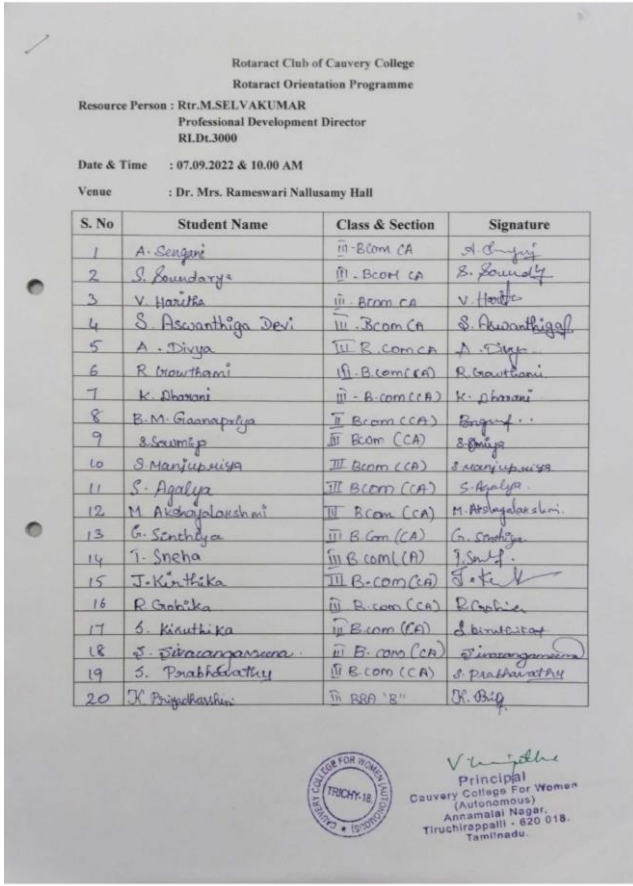 Rotaract Club of Cauvery College
Rotaract Orientation Programme
Resource Person : Rtr.M.SELVAKUMAR
Professional Development Director
RI.Dt.3000
Date & Time : 07.09.2022 & 10.00 AM
Venue : Dr. Mrs. Rameswari Nallusamy Hall
S. No Student Name Class & Section Signature
1 A. Sengani III -BCom CA
2 S. Soundarya III - BCom CA S. Soundy
3 V. Haritha III - Bcom CA V. Haritha
4 S. Aswanthiga Devi III - Bcom CA S. Aswanthiga
5 A . Divya III B.com CA A . Divya
6 R Gowthami III - B.com (CA) R. Gowthami
7 K. Dharani III - B.com (CA) K. Dharani
8 B.M. Gaanapriya II Bcom (CCA)
9 S. Sowmiya III Bcom (CCA)
10 S. Manjupriya III Bcom (CCA) S Manjupriya
11 S. Agalya III Bcom (CCA) S. Agalya.
12 M. Akshayalakshmi III Bcom (CCA) M. Akshayalakshmi.
13 G. Sinthiya III B.Com (CA) G. Sinthiya
14 T. Sneha III B.com (CA)
15 J. Kirthika III B.com (CA)
16 R Gobika III B.com (CA)
17 S. Kiruthika III B.com (CA)
18 S. Sivarangameena . III B. com (CA) Sivarangameena
19 S. Prabhavathy III B.com (CA) S. Prabhavathy
20 K. Priyadharshini III BBA "B"
CAUVERY COLLEGE FOR WOMEN (AUTONOMOUS)
TRICHY-18.
Principal
Cauvery College For Women
(Autonomous)
Annamalai Nagar,
Tiruchirappalli - 620 018.
Tamilnadu.